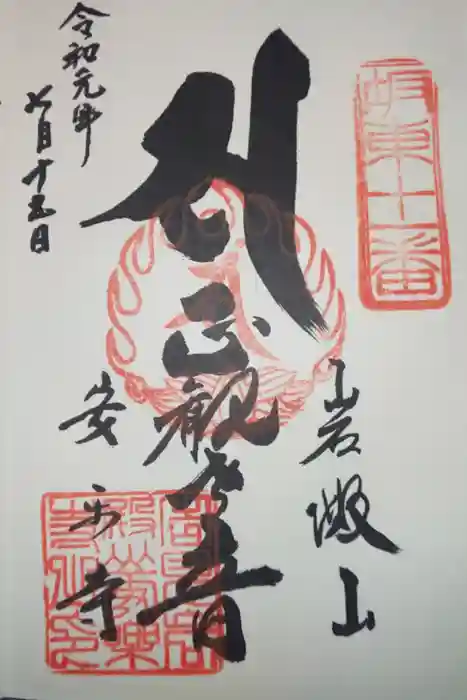 坂東十一番
岩殿山
正観世音
安楽寺
令和元年
七月十五日